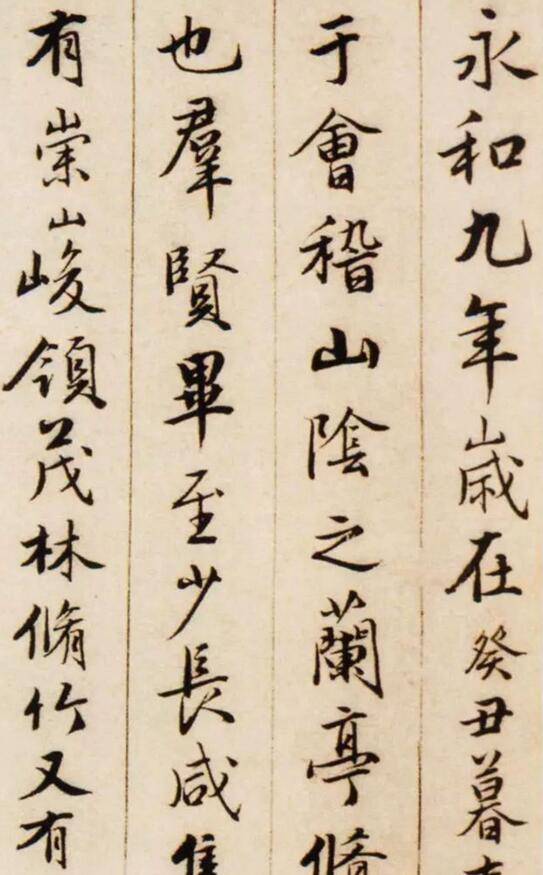 永和九年歲在癸丑暮
于會稽山陰之蘭亭脩
也羣賢畢至少長咸集
有崇山峻領茂林脩竹又有